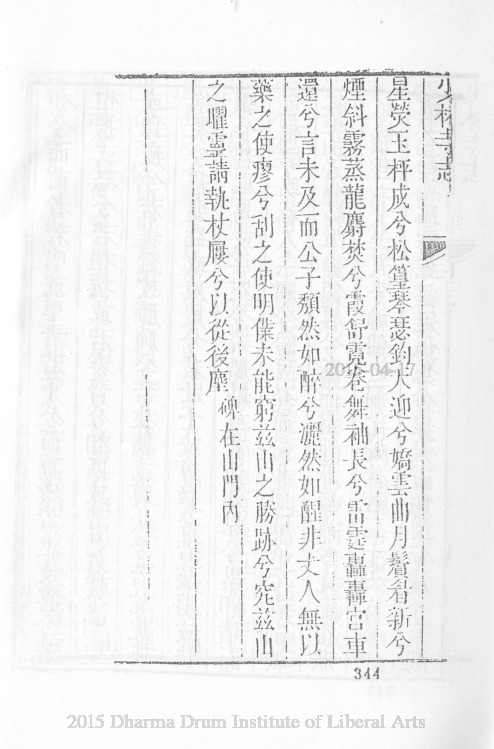 少林寺志
星熒玉枰成兮松篁琴瑟釣人迎兮嬌雲曲月鬟看新兮
煙斜霧蒸龍麝焚兮霞舒霓卷舞袖長兮雷霆轟轟宮車
還兮言未及而公子頹然如醉兮灑然如醒非丈人無以
藥之使瘳兮刮之使明僕未能窮茲山之勝跡兮究茲山
之曜靈請執杖屨兮以從後塵 碑在山門內
344
2015 Dharma Drum Institute of Liberal Arts